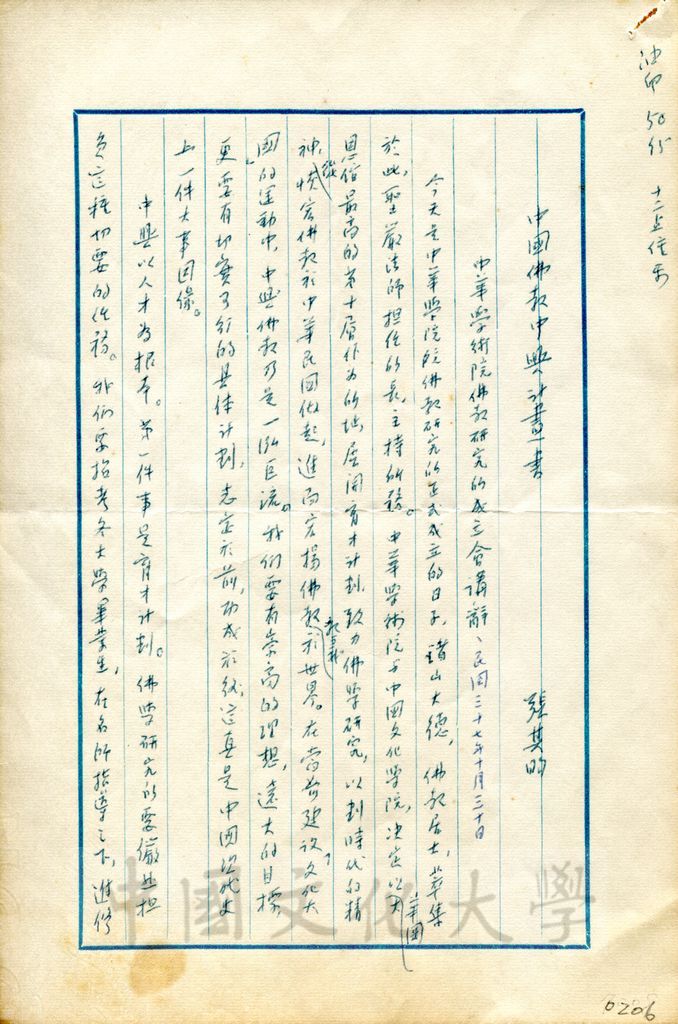 油印 50份 十二点住手
中國佛教中興計畫書
張其昀
中華學術院佛教研究所成立會講辭、民國三十七年十月三十日
今天是中華學術院佛教研究所正式成立的日子，諸山大德，佛教居士，萃集
於此，聖嚴法師担任所長，主持所務。中華學術院與中國文化學院，決定以大
恩館最高的第十層作為所址，展開育才計劃，致力佛學研究，以劃時代的精
神，恢宏佛教於中華民國做起，進而宏揚佛教於世界。在當前建設「文化大
國」的運動中，中興佛教乃是一泓巨流。我們要有崇高的理想，遠大的目標
更要有切實可行的具体計劃，志定於前，功成於後，這真是中國現代史
上一件大事因緣。
中興以人才為根本。第一件事是育才計劃。佛學研究所要儼然担
負這種切要的任務。我們要招考各大學畢業生，在名師指導之下，進修
華岡
中國文化大學
0206